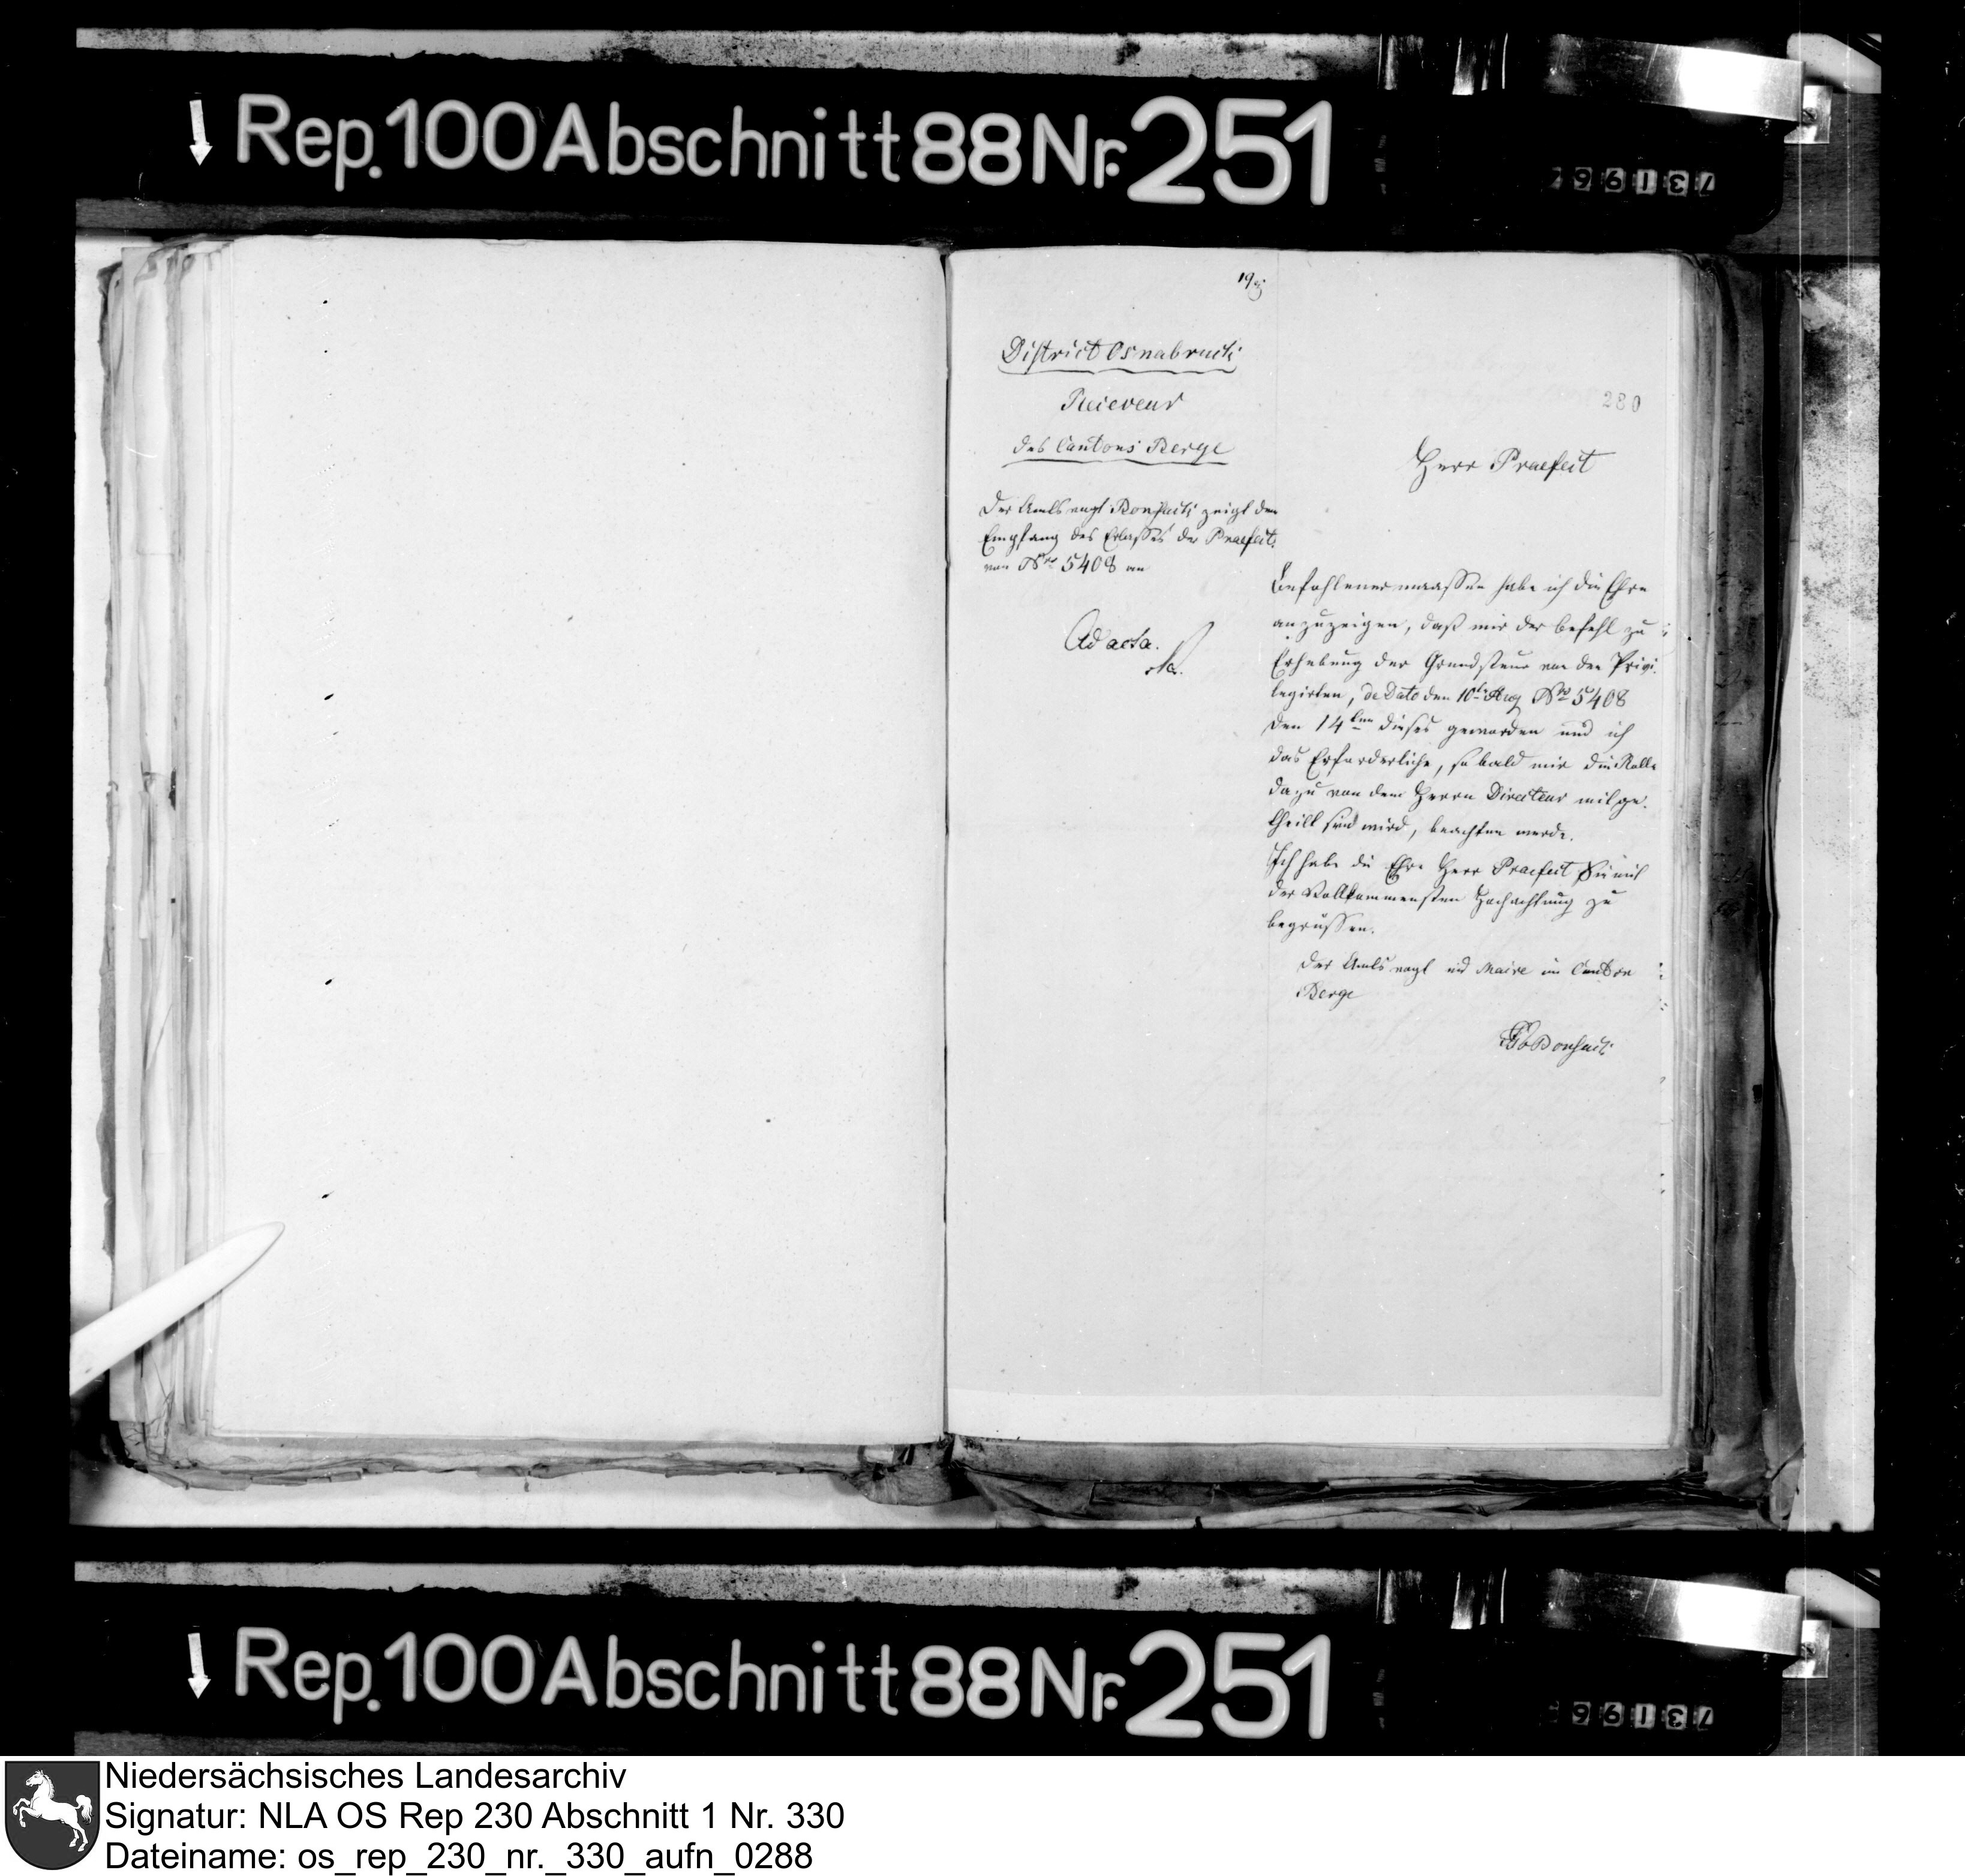 Rep. 100 Abschnitt 88 Nr. 251
District Osnabruck
Receveur
des Cantons Berge
Der Amtsvogt Bonsack zeigt den
Empfang des Erlasses der Praefect:
von Nro 5408 an
Ad acta.
280
Herr Praefect
Befohlenermaassen habe ich die Ehre
anzuzeigen, daß mir der Befehl zu
Erhebung der Grundsteur von den Privi-
legirten, de Dato den 10ten Aug No 5408
den 14ten dieses geworden und ich
das Erforderliche, so bald mir die Rolle
dazu von dem Herrn Directeur mitge-
theilt sein wird, beachten werde.
Ich habe die Ehre Herr Praefect Sie mit
der Vollkommensten Hochachtung zu
begrüssen.
Der Amtsvogt und Maire im Canton
Berge
Bonsack
Rep. 100 Abschnitt 88 Nr. 251
Niedersächsisches Landesarchiv
Signatur: NLA OS Rep 230 Abschnitt 1 Nr. 330
Dateiname: os_rep_230_nr._330_aufn_0288